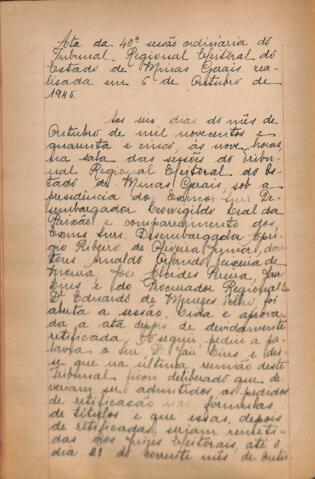 Ata da 40ª sessão ordinária do
Tribunal Regional Eleitoral do
Estado de Minas Gerais rea-
lisada em 6 de Outubro de
1945.
Aos seis dias do mês de
Outubro de mil novecentos e
quarenta e cinco, ás nove horas,
na sala das sessões do Tribu-
nal Regional Eleitoral do Es-
tado de Minas Gerais, sob a
presidência do Exmo. Snr. De-
sembargador Leovigildo Leal da
Paixão e comparecimento dos
Exmos Snrs. Desembargador
Ribeiro de Oliveira Junior, dou-
tores Arnaldo Teixeira de
José Alcides Pereira, Jair
Lins e do Procurador Regional
Dr. Eduardo de Menezes Filho, foi
aberta a sessão. Lida e aprova-
da a ata depois de devidamente
retificada. A seguir pediu a pa-
lavra o Snr. Dr. Jair Lins e dis-
se que na última reunião deste
Tribunal ficou deliberado que de-
veriam ser admitidos os pedidos
de retificação nas fórmulas
de títulos e que essas, depois
de retificadas, seriam remeti-
das aos Juizes Eleitorais, até o
dia 23 do corrente mês de Outu-